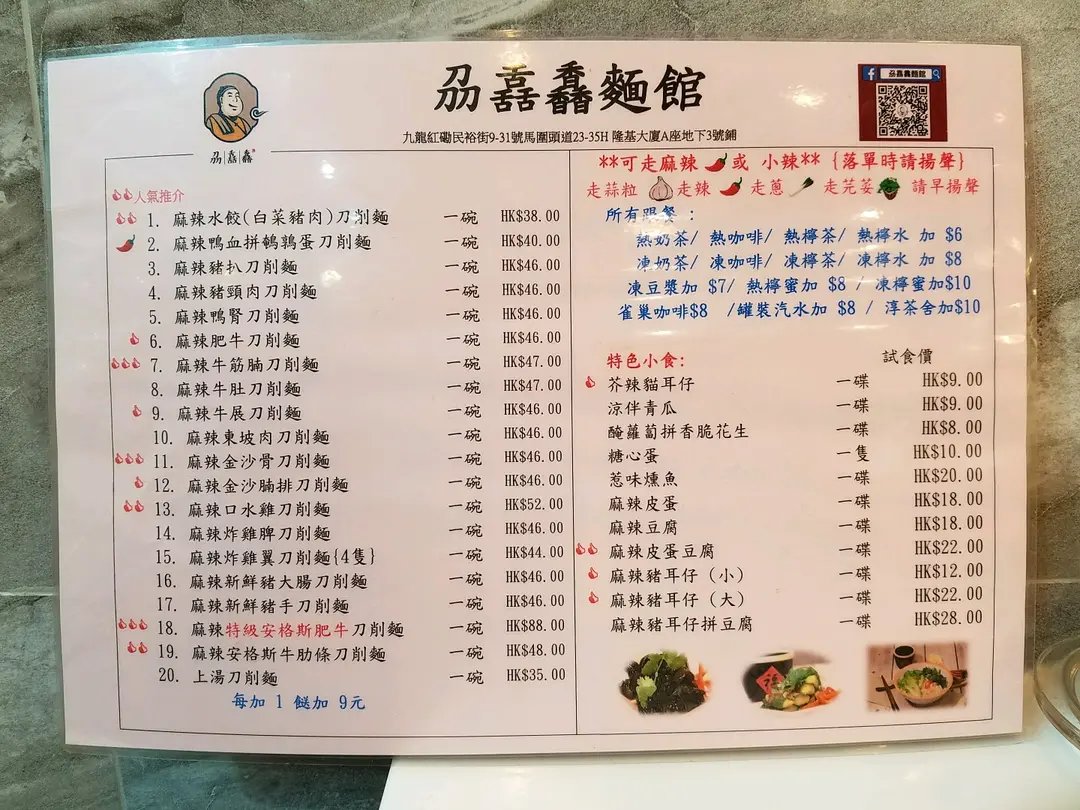 刕譶馫麵館
九龍紅磡民裕街9-31號馬圍頭道23-35H 隆基大廈A座地下3號鋪
刕譶馫麵館
刕譶馫
人氣推介
1. 麻辣水餃(白菜豬肉)刀削麵 一碗 HK$38.00
2. 麻辣鴨血拼鵪鶉蛋刀削麵 一碗 HK$40.00
3. 麻辣豬扒刀削麵 一碗 HK$46.00
4. 麻辣豬頸肉刀削麵 一碗 HK$46.00
5. 麻辣鴨腎刀削麵 一碗 HK$46.00
6. 麻辣肥牛刀削麵 一碗 HK$46.00
7. 麻辣牛筋腩刀削麵 一碗 HK$47.00
8. 麻辣牛肚刀削麵 一碗 HK$47.00
9. 麻辣牛展刀削麵 一碗 HK$46.00
10. 麻辣東坡肉刀削麵 一碗 HK$46.00
11. 麻辣金沙骨刀削麵 一碗 HK$46.00
12. 麻辣金沙腩排刀削麵 一碗 HK$46.00
13. 麻辣口水雞刀削麵 一碗 HK$52.00
14. 麻辣炸雞脾刀削麵 一碗 HK$46.00
15. 麻辣炸雞翼刀削麵{4隻} 一碗 HK$44.00
16. 麻辣新鮮豬大腸刀削麵 一碗 HK$46.00
17. 麻辣新鮮豬手刀削麵 一碗 HK$46.00
18. 麻辣特級安格斯肥牛刀削麵 一碗 HK$88.00
19. 麻辣安格斯牛肋條刀削麵 一碗 HK$48.00
20. 上湯刀削麵 一碗 HK$35.00
每加 1 餸加 9元
**可走麻辣 或 小辣** {落單時請揚聲}
走蒜粒 走辣 走蔥 走芫荽 請早揚聲
所有跟餐 :
熱奶茶/ 熱咖啡/ 熱檸茶/ 熱檸水 加 $6
凍奶茶/ 凍咖啡/ 凍檸茶/ 凍檸水 加 $8
凍豆漿加 $7/ 熱檸蜜加 $8 / 凍檸蜜加$10
雀巢咖啡$8 /罐裝汽水加 $8 / 淳茶舍加$10
特色小食: 試食價
芥辣貓耳仔 一碟 HK$9.00
涼伴青瓜 一碟 HK$9.00
醃蘿蔔拼香脆花生 一碟 HK$8.00
糖心蛋 一隻 HK$10.00
惹味燻魚 一碟 HK$20.00
麻辣皮蛋 一碟 HK$18.00
麻辣豆腐 一碟 HK$18.00
麻辣皮蛋豆腐 一碟 HK$22.00
麻辣豬耳仔（小） 一碟 HK$12.00
麻辣豬耳仔（大） 一碟 HK$22.00
麻辣豬耳仔拼豆腐 一碟 HK$28.00
福